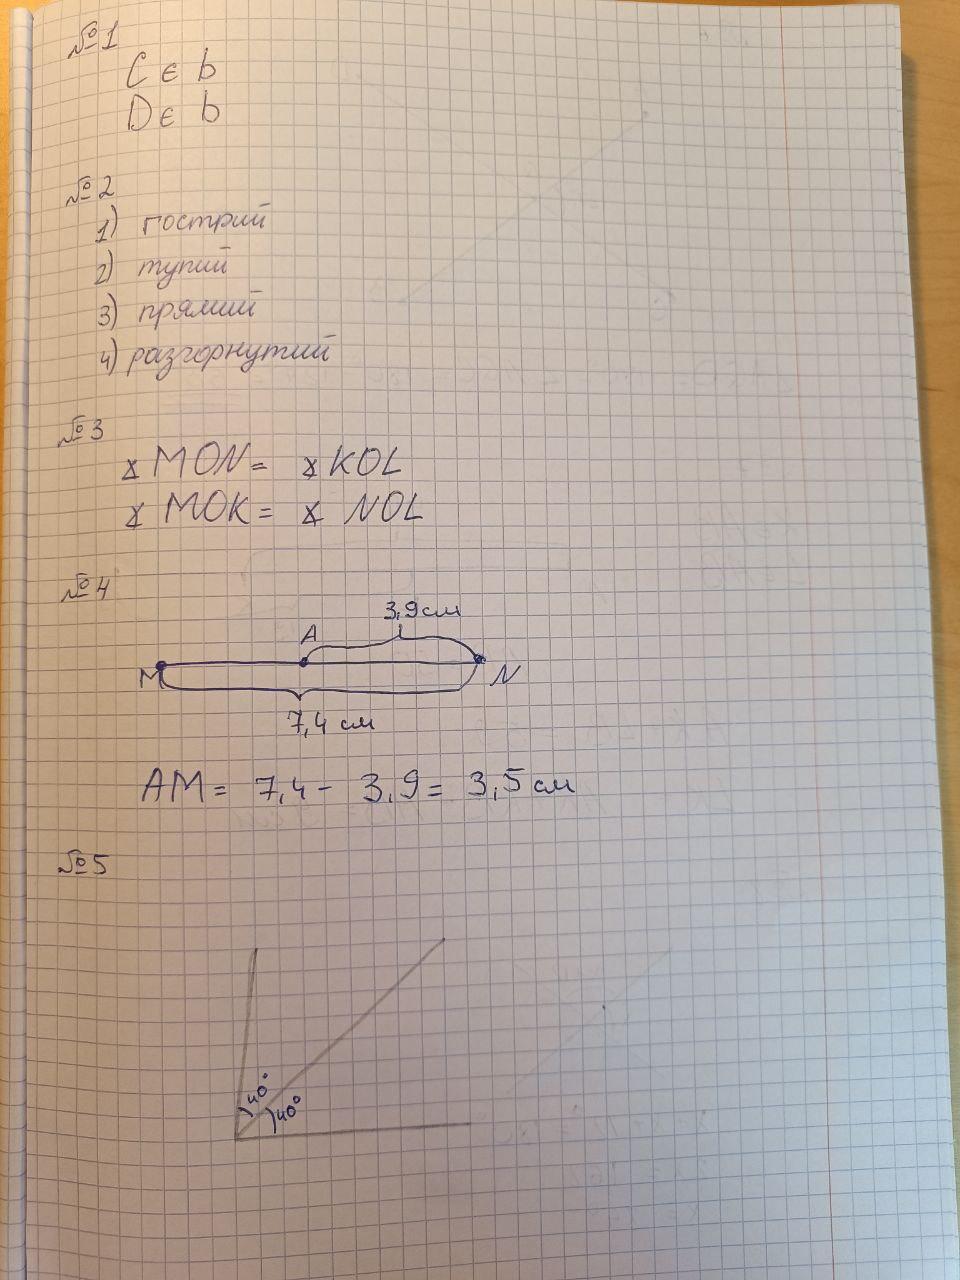 №1
C є b
D є b
№2
1) гострий
2) тупий
3) прямий
4) разгорнутий
№3
∡ MON = ∡ KOL
∡ MOK = ∡ NOL
№4
3,9 см
A
M N
7,4 см
AM = 7,4 - 3,9 = 3,5 см
№5
40°
40°